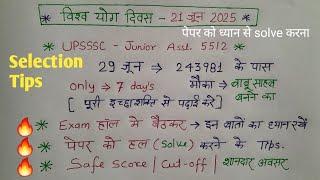 * विश्व योग दिवस - 21 जून 2025 *
पेपर को ध्यान से solve करना
Selection Tips
* UPSSSC - Junior Asst. 5512 *
29 जून → 243981 के पास
only → 7 day's मौका → बाबू साहब बनने का
[ पूरी इच्छाशक्ति से पढ़ाई करें ]
* Exam हॉल में बैठकर → इन बातों का ध्यान रखें
* पेपर को हल (solve) करने के Tips.
* Safe score / Cut-off / शानदार अवसर